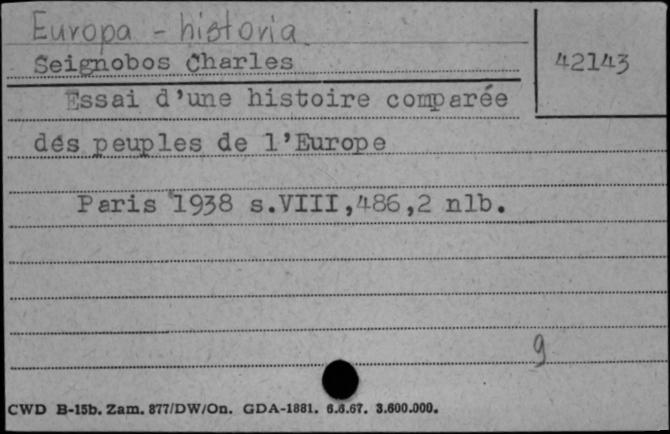 Europa - historia
Seignobos Charles
42143
Essai d'une histoire comparée
des peuples de l'Europe
Paris 1938 s.VIII,486,2 nlb.
9
CWD B-15b. Zam. 877/DW/On. GDA-1881. 6.6.67. 3.600.000.